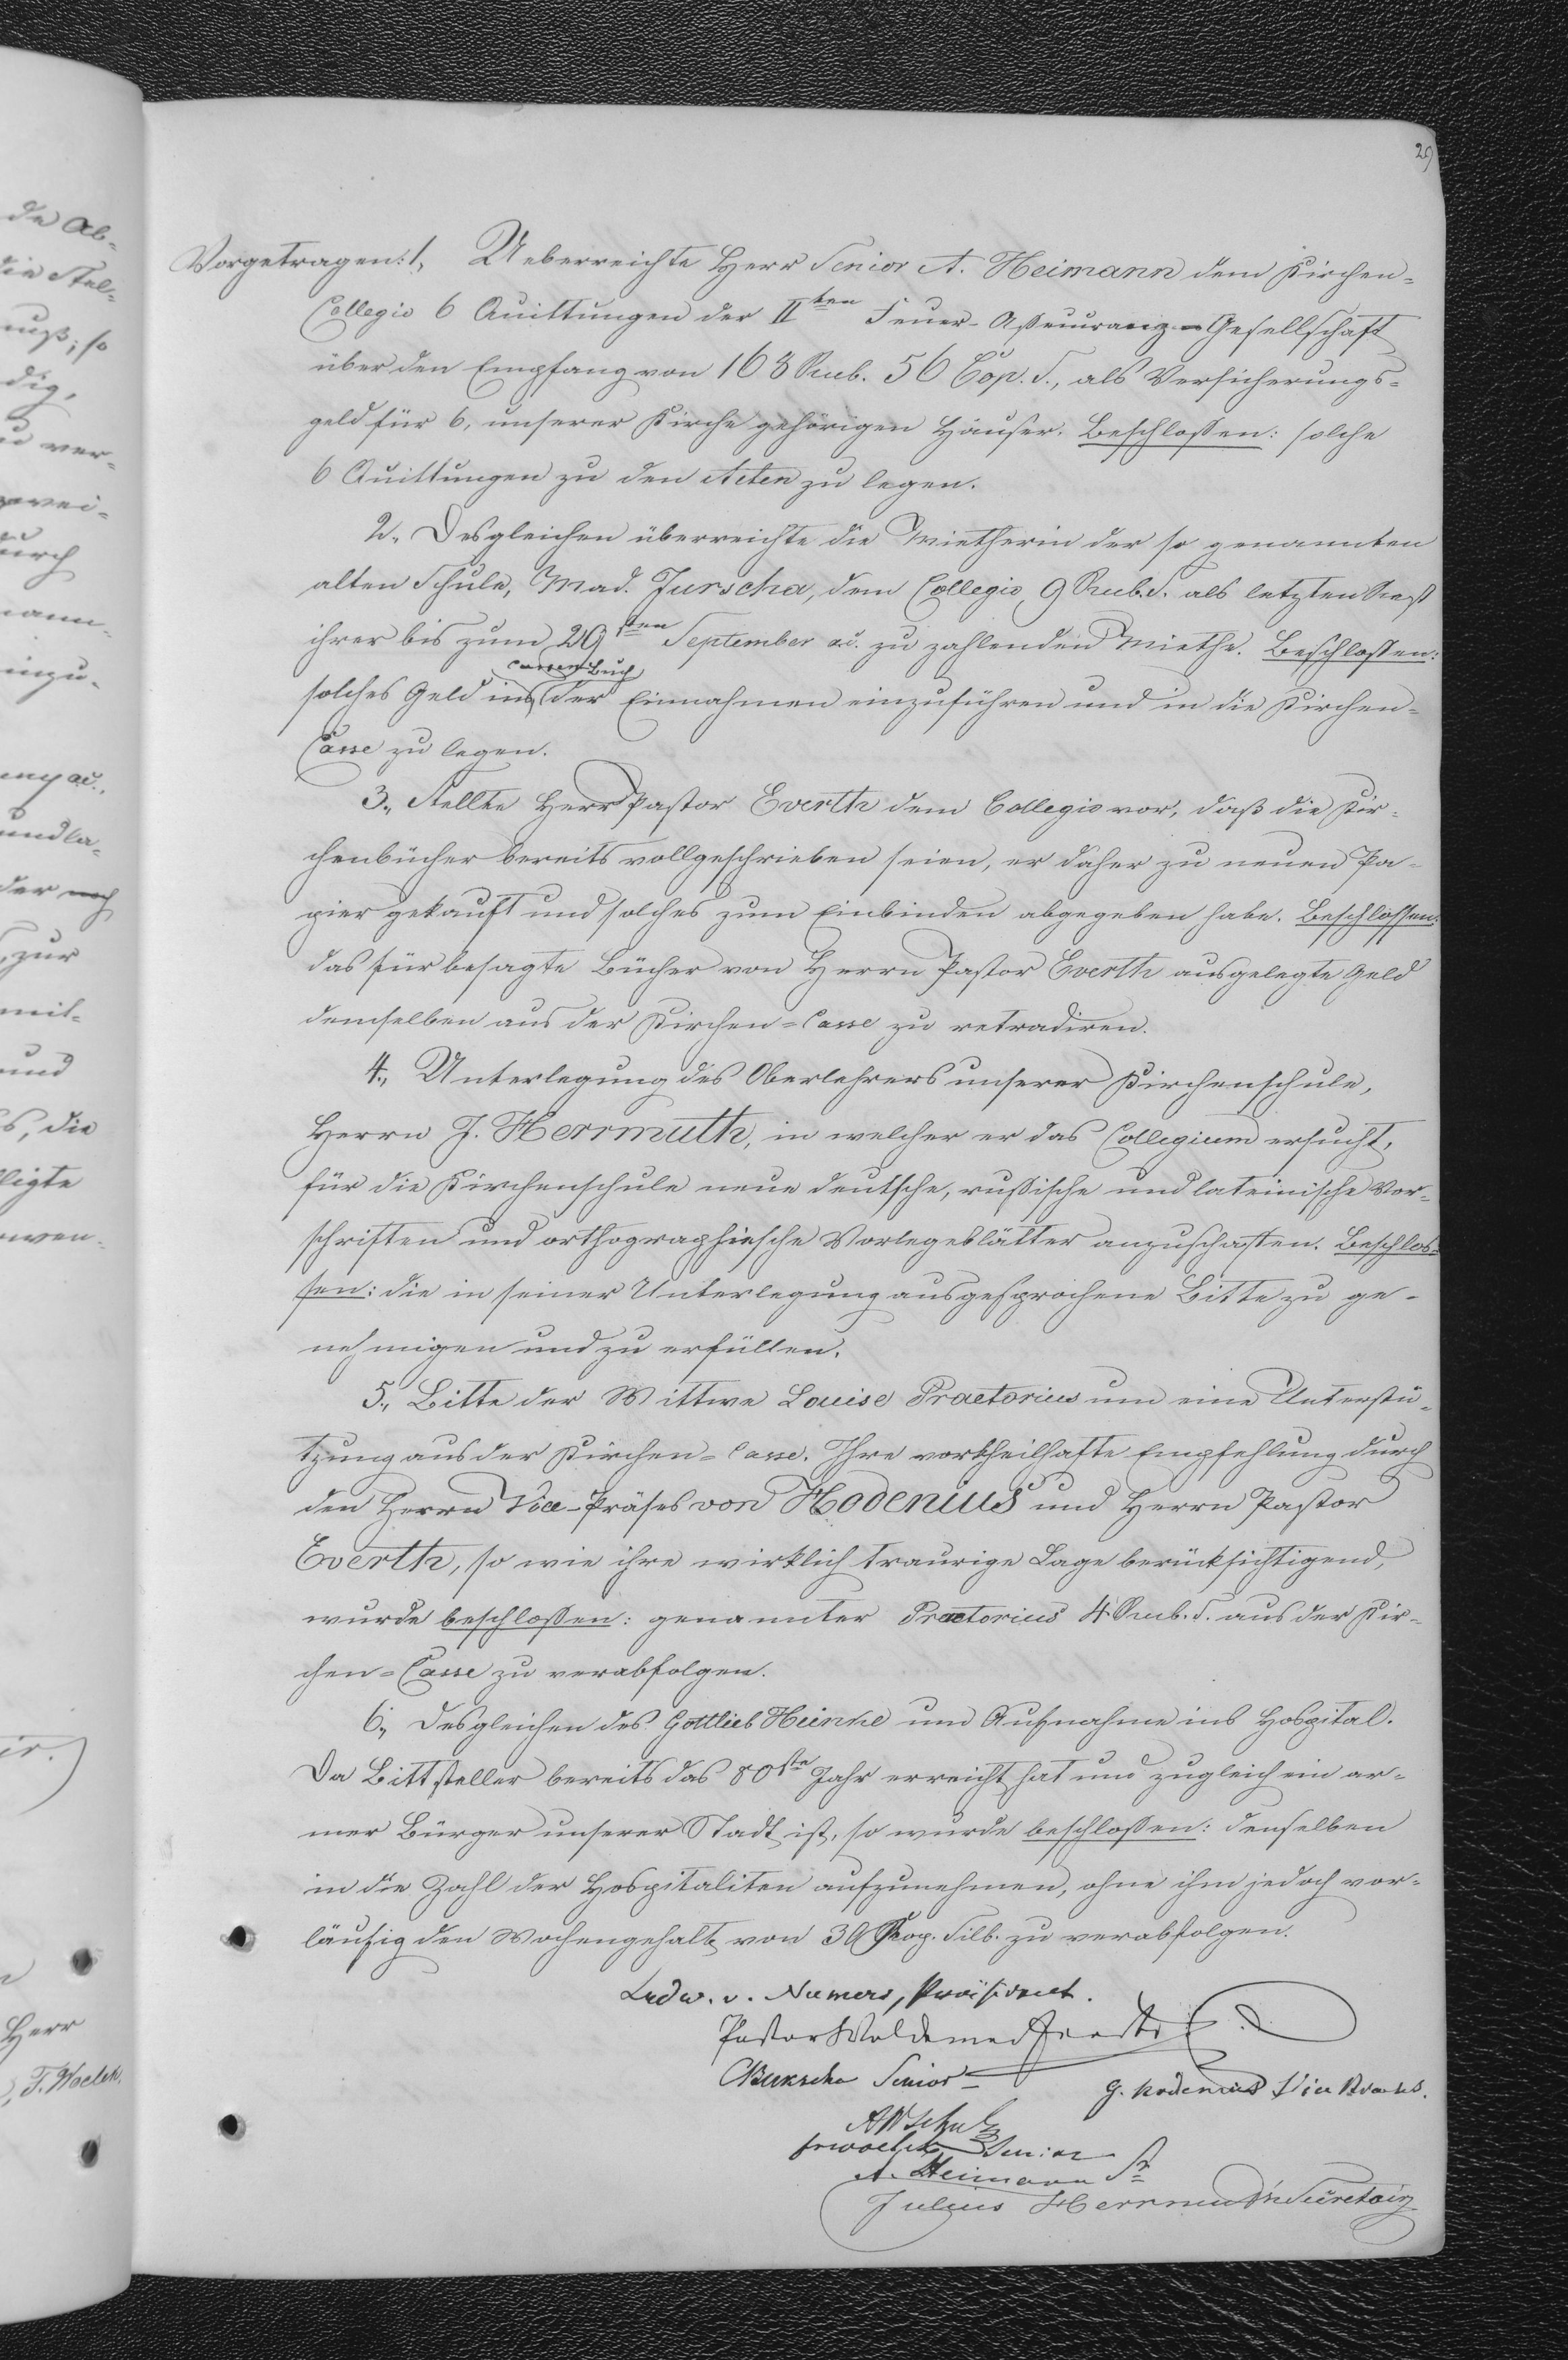 29
Vorgetragen: 1, Ueberreichte Herr Senior A. Heimann dem Kirchen-
Collegio 6 Quittungen der IIten Feuer-Assecuranz-Gesellschaft
über den Empfang von 163 Rub. 56 Cop. S., als Versicherungs-
geld für 6, unserer Kirche gehörigen Häuser. Beschlossen: solche
6 Quittungen zu den Acten zu legen.
2., Desgleichen überreichte die Mietherin der so genannten
alten Schule, Mad. Jurscha, dem Collegio, 9 Rub. S. als letzten Rest
ihrer bis zum 29sten September ac. zu zahlenden Miethe. Beschlossen:
Cassenbuch
solches Geld ins der Einnahmen einzuführen und in die Kirchen-
Casse zu legen.
3., Stellte Herr Pastor Everth dem Collegio vor, daß die Kir-
chenbücher bereits vollgeschrieben seien, er daher zu neuen Pa-
pier gekauft und solches zum Einbinden abgegeben habe. Beschlossen:
das für besagte Bücher von Herrn Pastor Everth ausgelegte Geld
demselben aus der Kirchen-Casse zu retradiren.
4., Unterlegung des Oberlehrers unserer Kirchenschule,
Herrn J. Herrmuth, in welcher er das Collegium ersucht,
für die Kirchenschule neue deutsche, russische und lateinische Vor-
schriften und orthographiesche Vorlegeblätter anzuschaffen. Beschlos-
sen: die in seiner Unterlegung ausgesprochene Bitte zu ge-
nehmigen und zu erfüllen.
5., Bitte der Wittwe Louise Praetorius um eine Unterstü-
tzung aus der Kirchen-Casse. Ihre vortheilhafte Empfehlung durch
den Herrn Vice-Präses von Hodenius und Herrn Pastor
Everth, so wie ihre wirklich traurige Lage berücksichtigend,
wurde beschlossen: genannter Praetorius 4 Rub. S. aus der Kir-
chen-Casse zu verabfolgen.
6., Desgleichen des Gottlieb Heinke um Aufnahme ins Hospital.
Da Bittsteller bereits das 80ste Jahr erreicht hat und zugleich ein ar-
mer Bürger unserer Stadt ist, so wurde beschlossen: denselben
in die Zahl der Hospitaliten aufzunehmen, ohne ihm jedoch vor-
läufig den Wochengehalt von 30 Kop. Silb. zu verabfolgen.
Ludw. v. Numers, Präsident.
Pastor Woldemar Everth
Senior
G. Hodenius Vice Präses.
A W Schulz
Senior
A. Heimann Sr
Julius Herrmuth Secretair